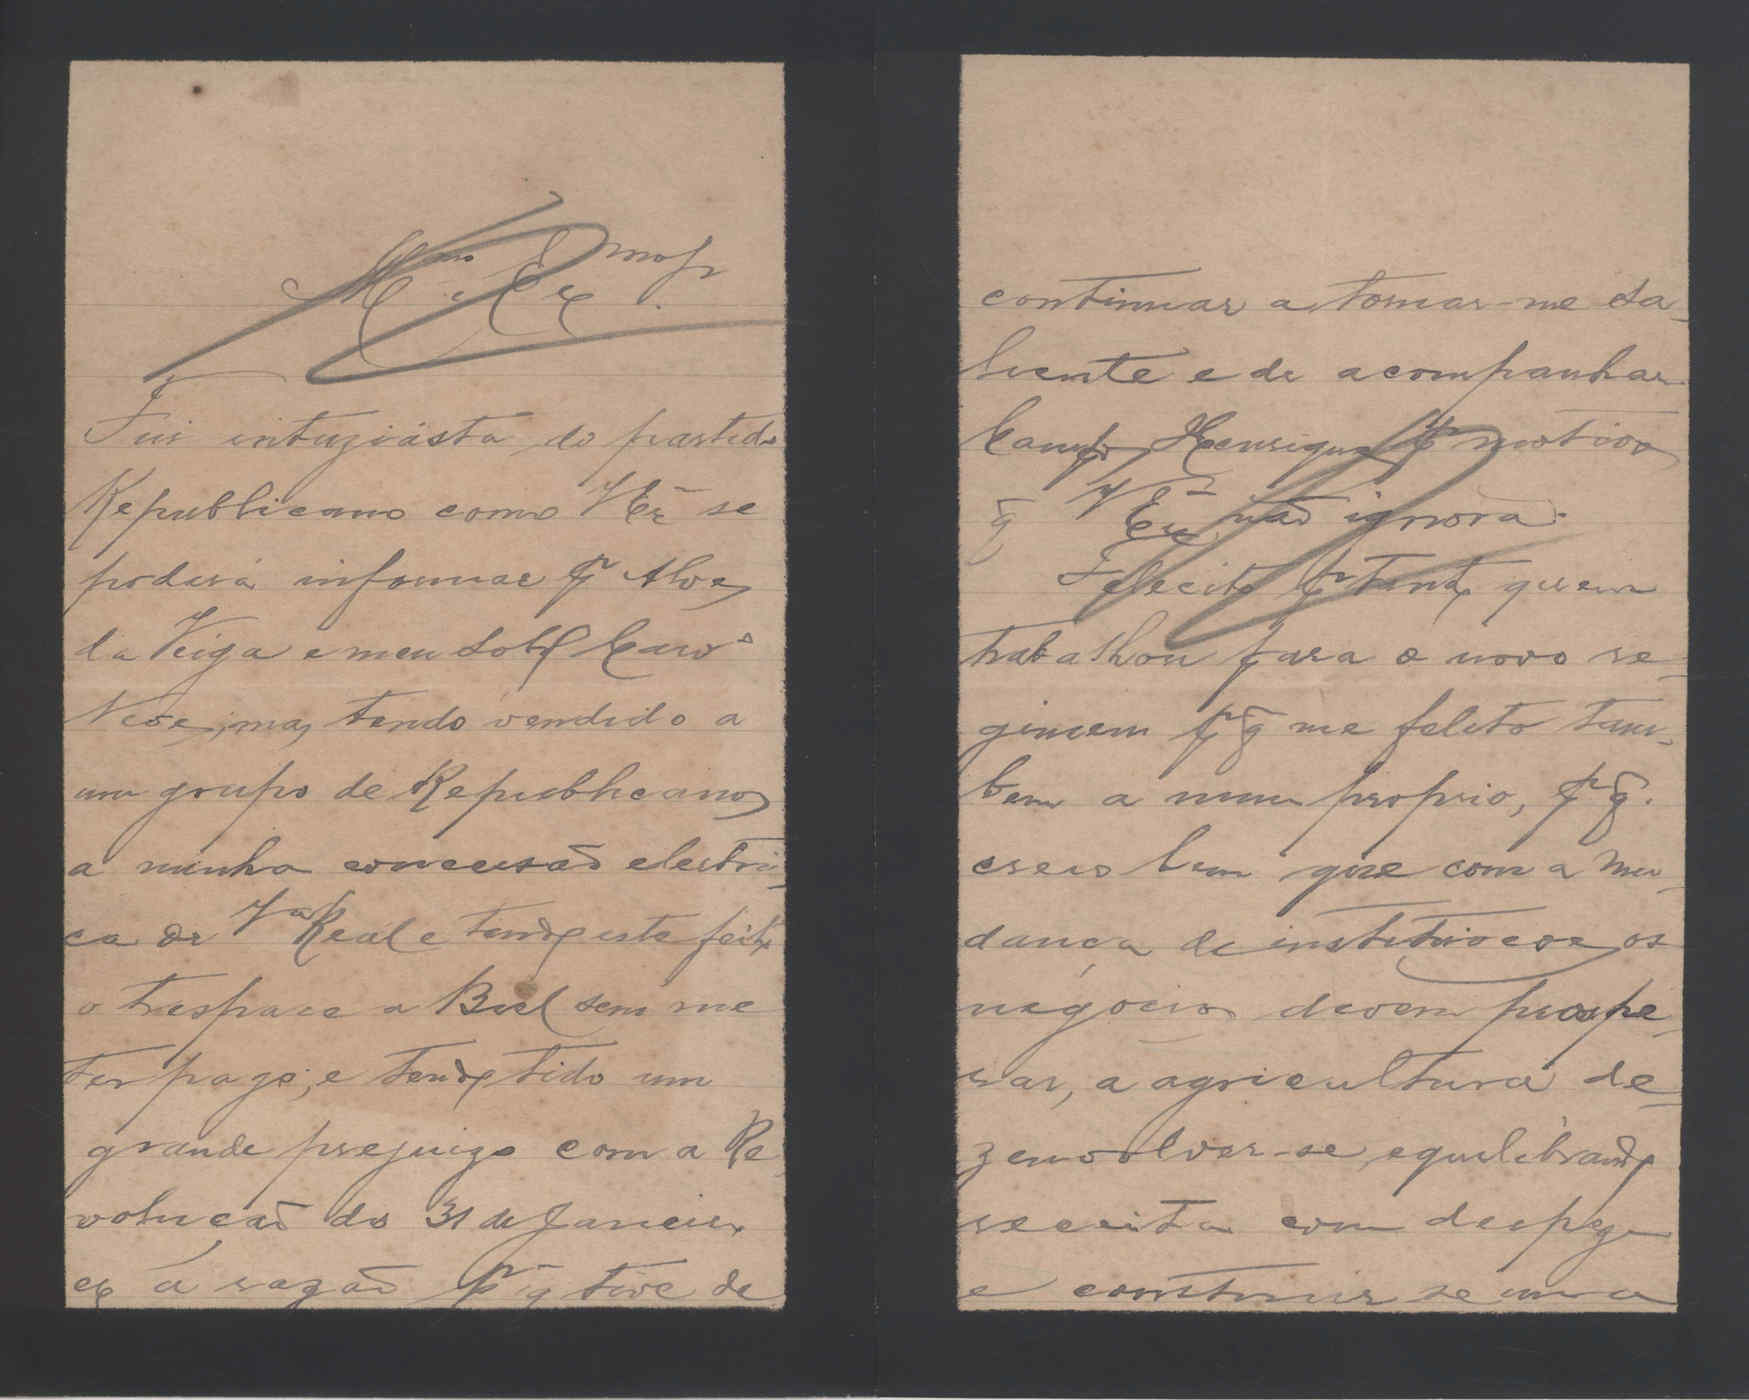 Illmo Exmo Sr
Fui intuziásta do partido
Republicano como V Exª se
poderá informar pr Alves
da Veiga e meu Sobr
mas tendo vendido a
um grupo de Republicanos
a minha concessão electri-
ca de Vª Real e tendo este feito
o trespace a Biel sem me
ter pago, e tendo tido um
grande prejuizo com a Re-
volução do 31 de Janeiro
eis a razão pr q tive de
continuar a tornar-me sa-
liente e de acompanhar
Campos Henriques pr motivos
q V Exª não ignora.
Felecito ptanto quem
trabalhou para o novo re-
gimem pr q me felito tam-
bem a mim proprio, pr q.
creio bem que com a mu-
dança de instituicoes os
negócios devem prospe-
rar, a agricultura de-
zenvolver-se equilibrando
receita com despeza
e construir se uma